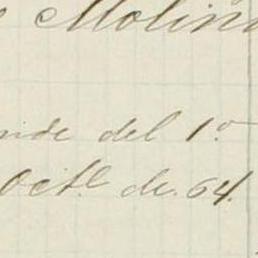 Molin
nide del 1.º
Octe. de. 64.